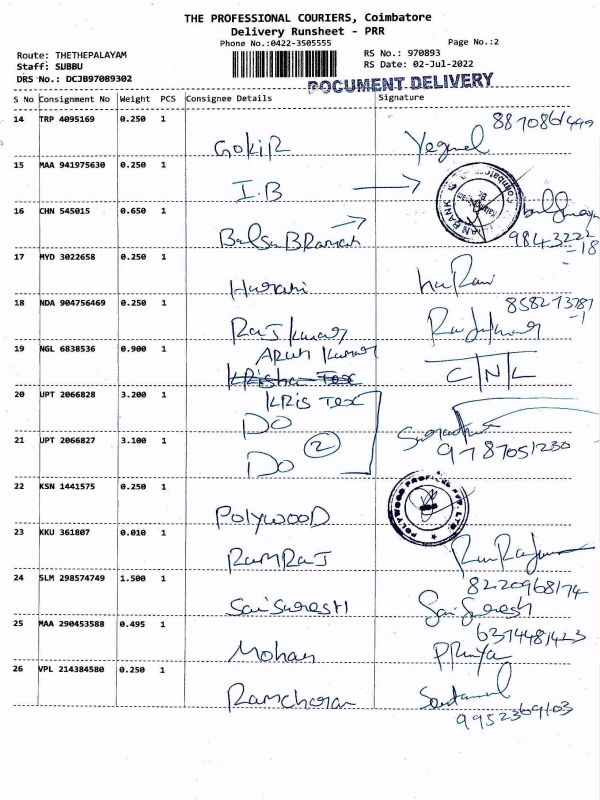 THE PROFESSIONAL COURIERS, Coimbatore
Delivery Runsheet - PRR
Phone No.:0422-3505555
Page No.:2
Route: THETHEPALAYAM
RS No.: 970893
Staff: SUBBU
RS Date: 02-Jul-2022
DRS No.: DCJB97089302
DOCUMENT DELIVERY
S No Consignment No Weight PCS Consignee Details Signature
14 TRP 4095169 0.250 1
GOKIR
15 MAA 941975630 0.250 1
I.B
16 CHN 545015 0.650 1
BalSuBRamani
9843222
-18
17 MYD 3022658 0.250 1
Harani haRani
18 NDA 904756469 0.250 1
858273787
-1
RajKumar Rajkumar
19 NGL 6838536 0.900 1
ARUN Kumar
KRisha Tex C/N/L
20 UPT 2066828 3.200 1
KRIS TEX
DO
21 UPT 2066827 3.100 1
2
DO 9787051230
22 KSN 1441575 0.250 1
POLYWOOD
POLYWOOD PROFILES PVT. LTD.
23 KKU 361807 0.010 1
RAMRAJ
24 SLM 298574749 1.500 1
8220968174
SaiSuresH Sai Suresh
25 MAA 290453588 0.495 1
6374481423
Mohan PRIYA
26 VPL 214384580 0.250 1
Ramcharan
9952369103